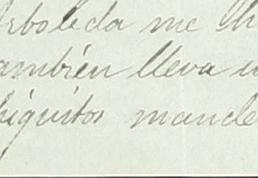 Arboleda me
también lleva
iquitos mande